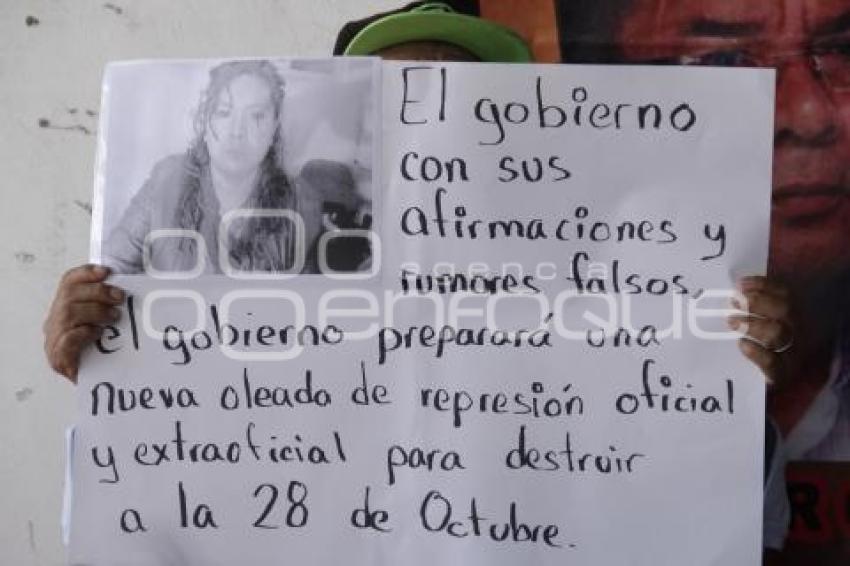 El gobierno
con sus
afirmaciones y
rumores falsos,
el gobierno preparará una
nueva oleada de represión oficial
y extraoficial para destruir
a la 28 de Octubre.
agencia
enfoque